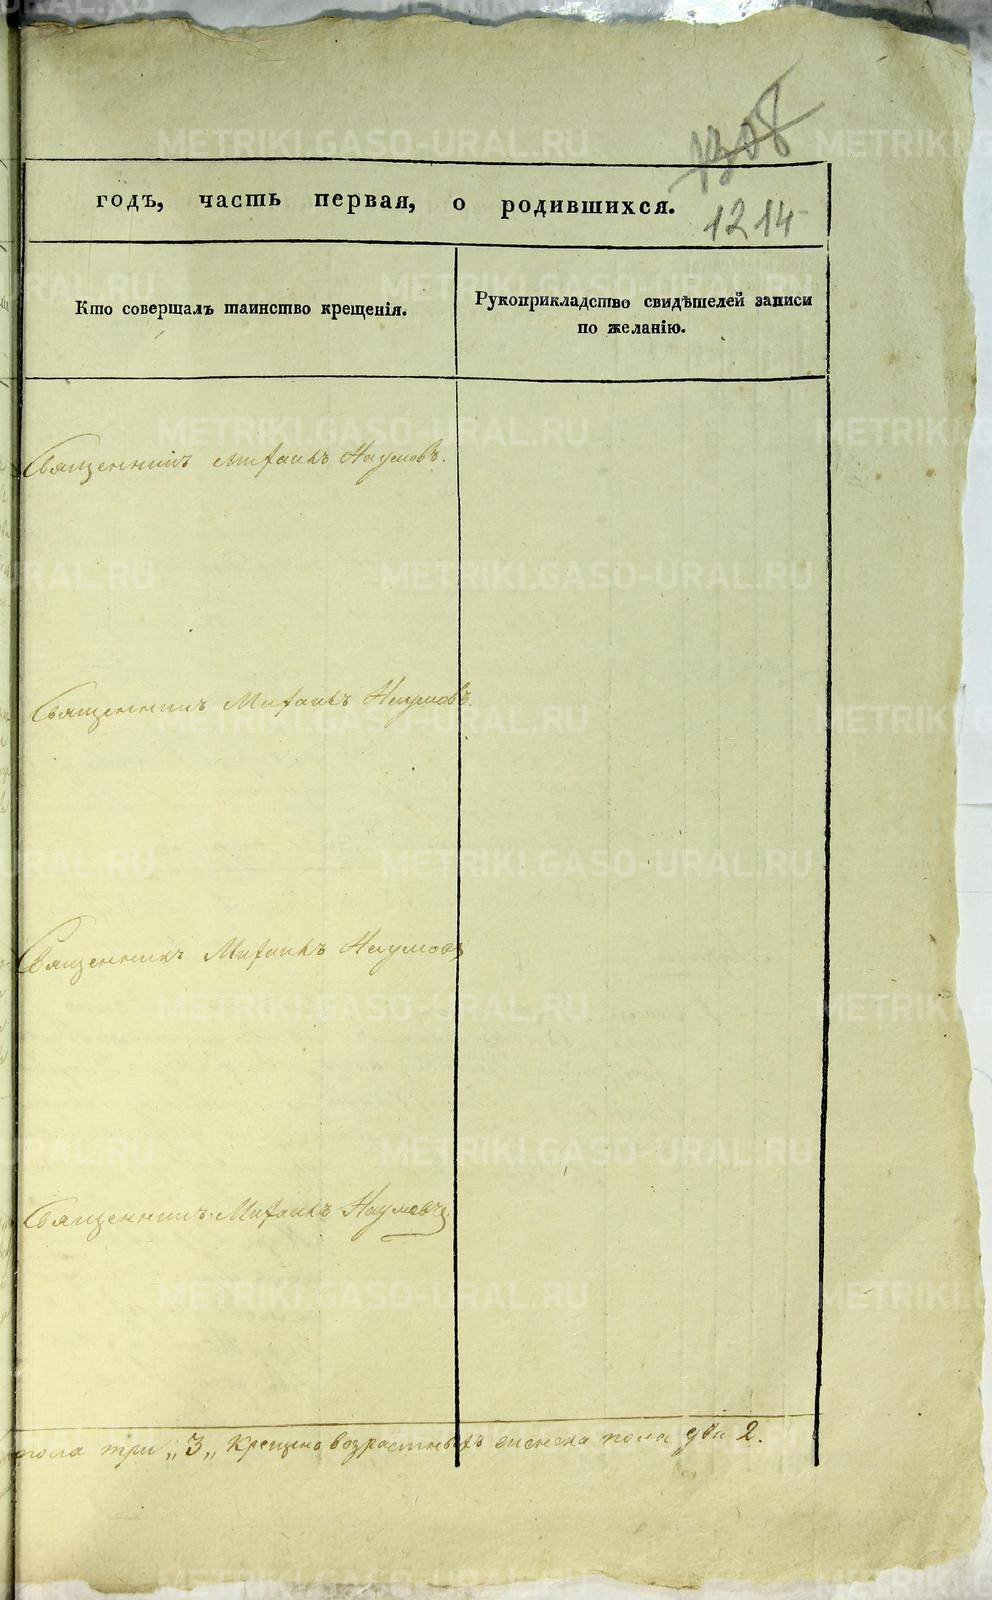 1308
годъ, часть первая, о родившихся.
1214
Кто совершалъ таинство крещенія.
Рукоприкладство свидѣтелей записи
по желанію.
Священникъ Михаилъ Наумовъ.
Священникъ Михаилъ Наумовъ.
Священникъ Михаилъ Наумовъ
Священникъ Михаилъ Наумовъ.
пола три „3„ Крещено возрастныхъ женска пола два 2.
METRIKI.GASO-URAL.RU